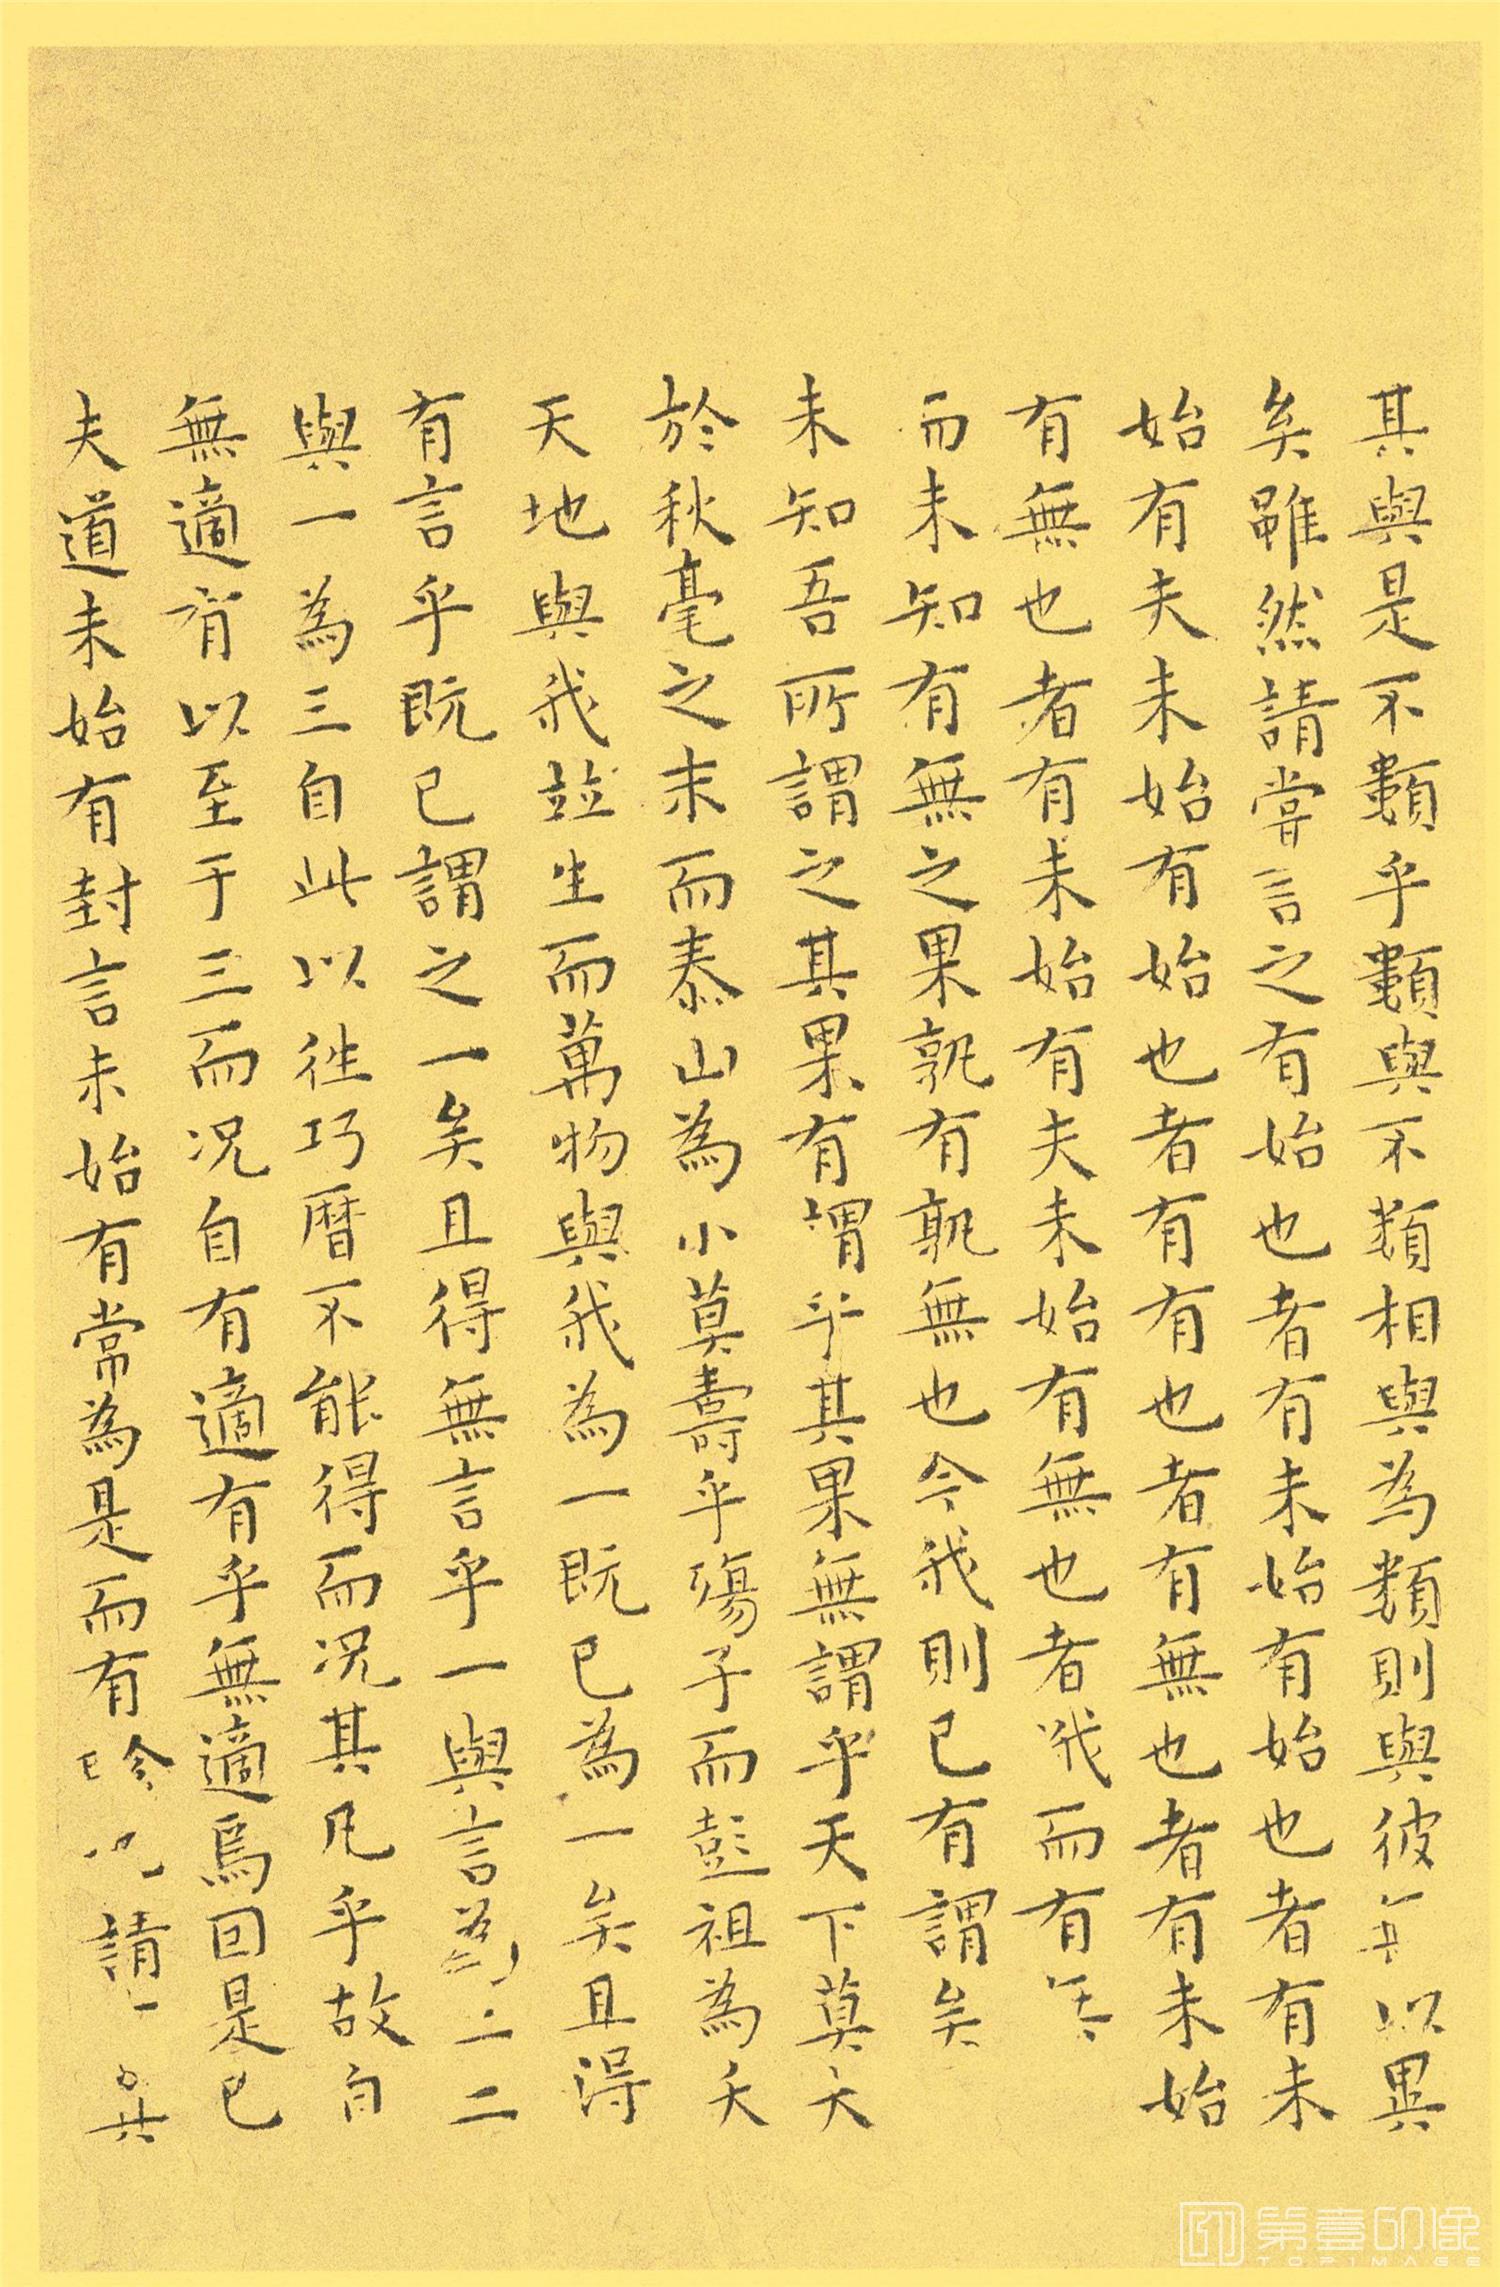 其與是不類乎類與不類相與為類則與彼無以異
矣雖然請嘗言之有始也者有未始有始也者有未
始有夫未始有始也者有有也者有無也者有未始
有無也者有未始有夫未始有無也者我而有無
而未知有無之果孰有孰無也今我則已有謂矣
未知吾所謂之其果有謂乎其果無謂乎天下莫大
於秋毫之末而泰山為小莫壽乎殤子而彭祖為夭
天地與我並生而萬物與我為一既已為一矣且得
有言乎既已謂之一矣且得無言乎一與言為二二
與一為三自此以往巧曆不能得而况其凡乎故自
無適有以至于三而况自有適有乎無適焉因是已
夫道未始有封言未始有常為是而有畛也請言其
第壹印像
TOP1MAGE